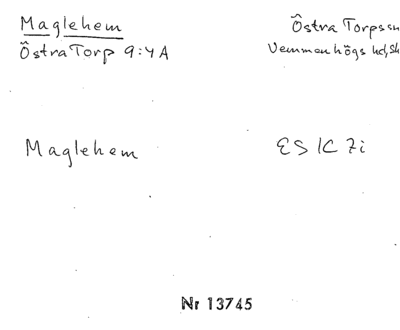 Maglehem
Östra Torp 9:4A
Östra Torpssn
Vemmenhögs hd, Sk
Maglehem
ESK 7i
Nr 13745